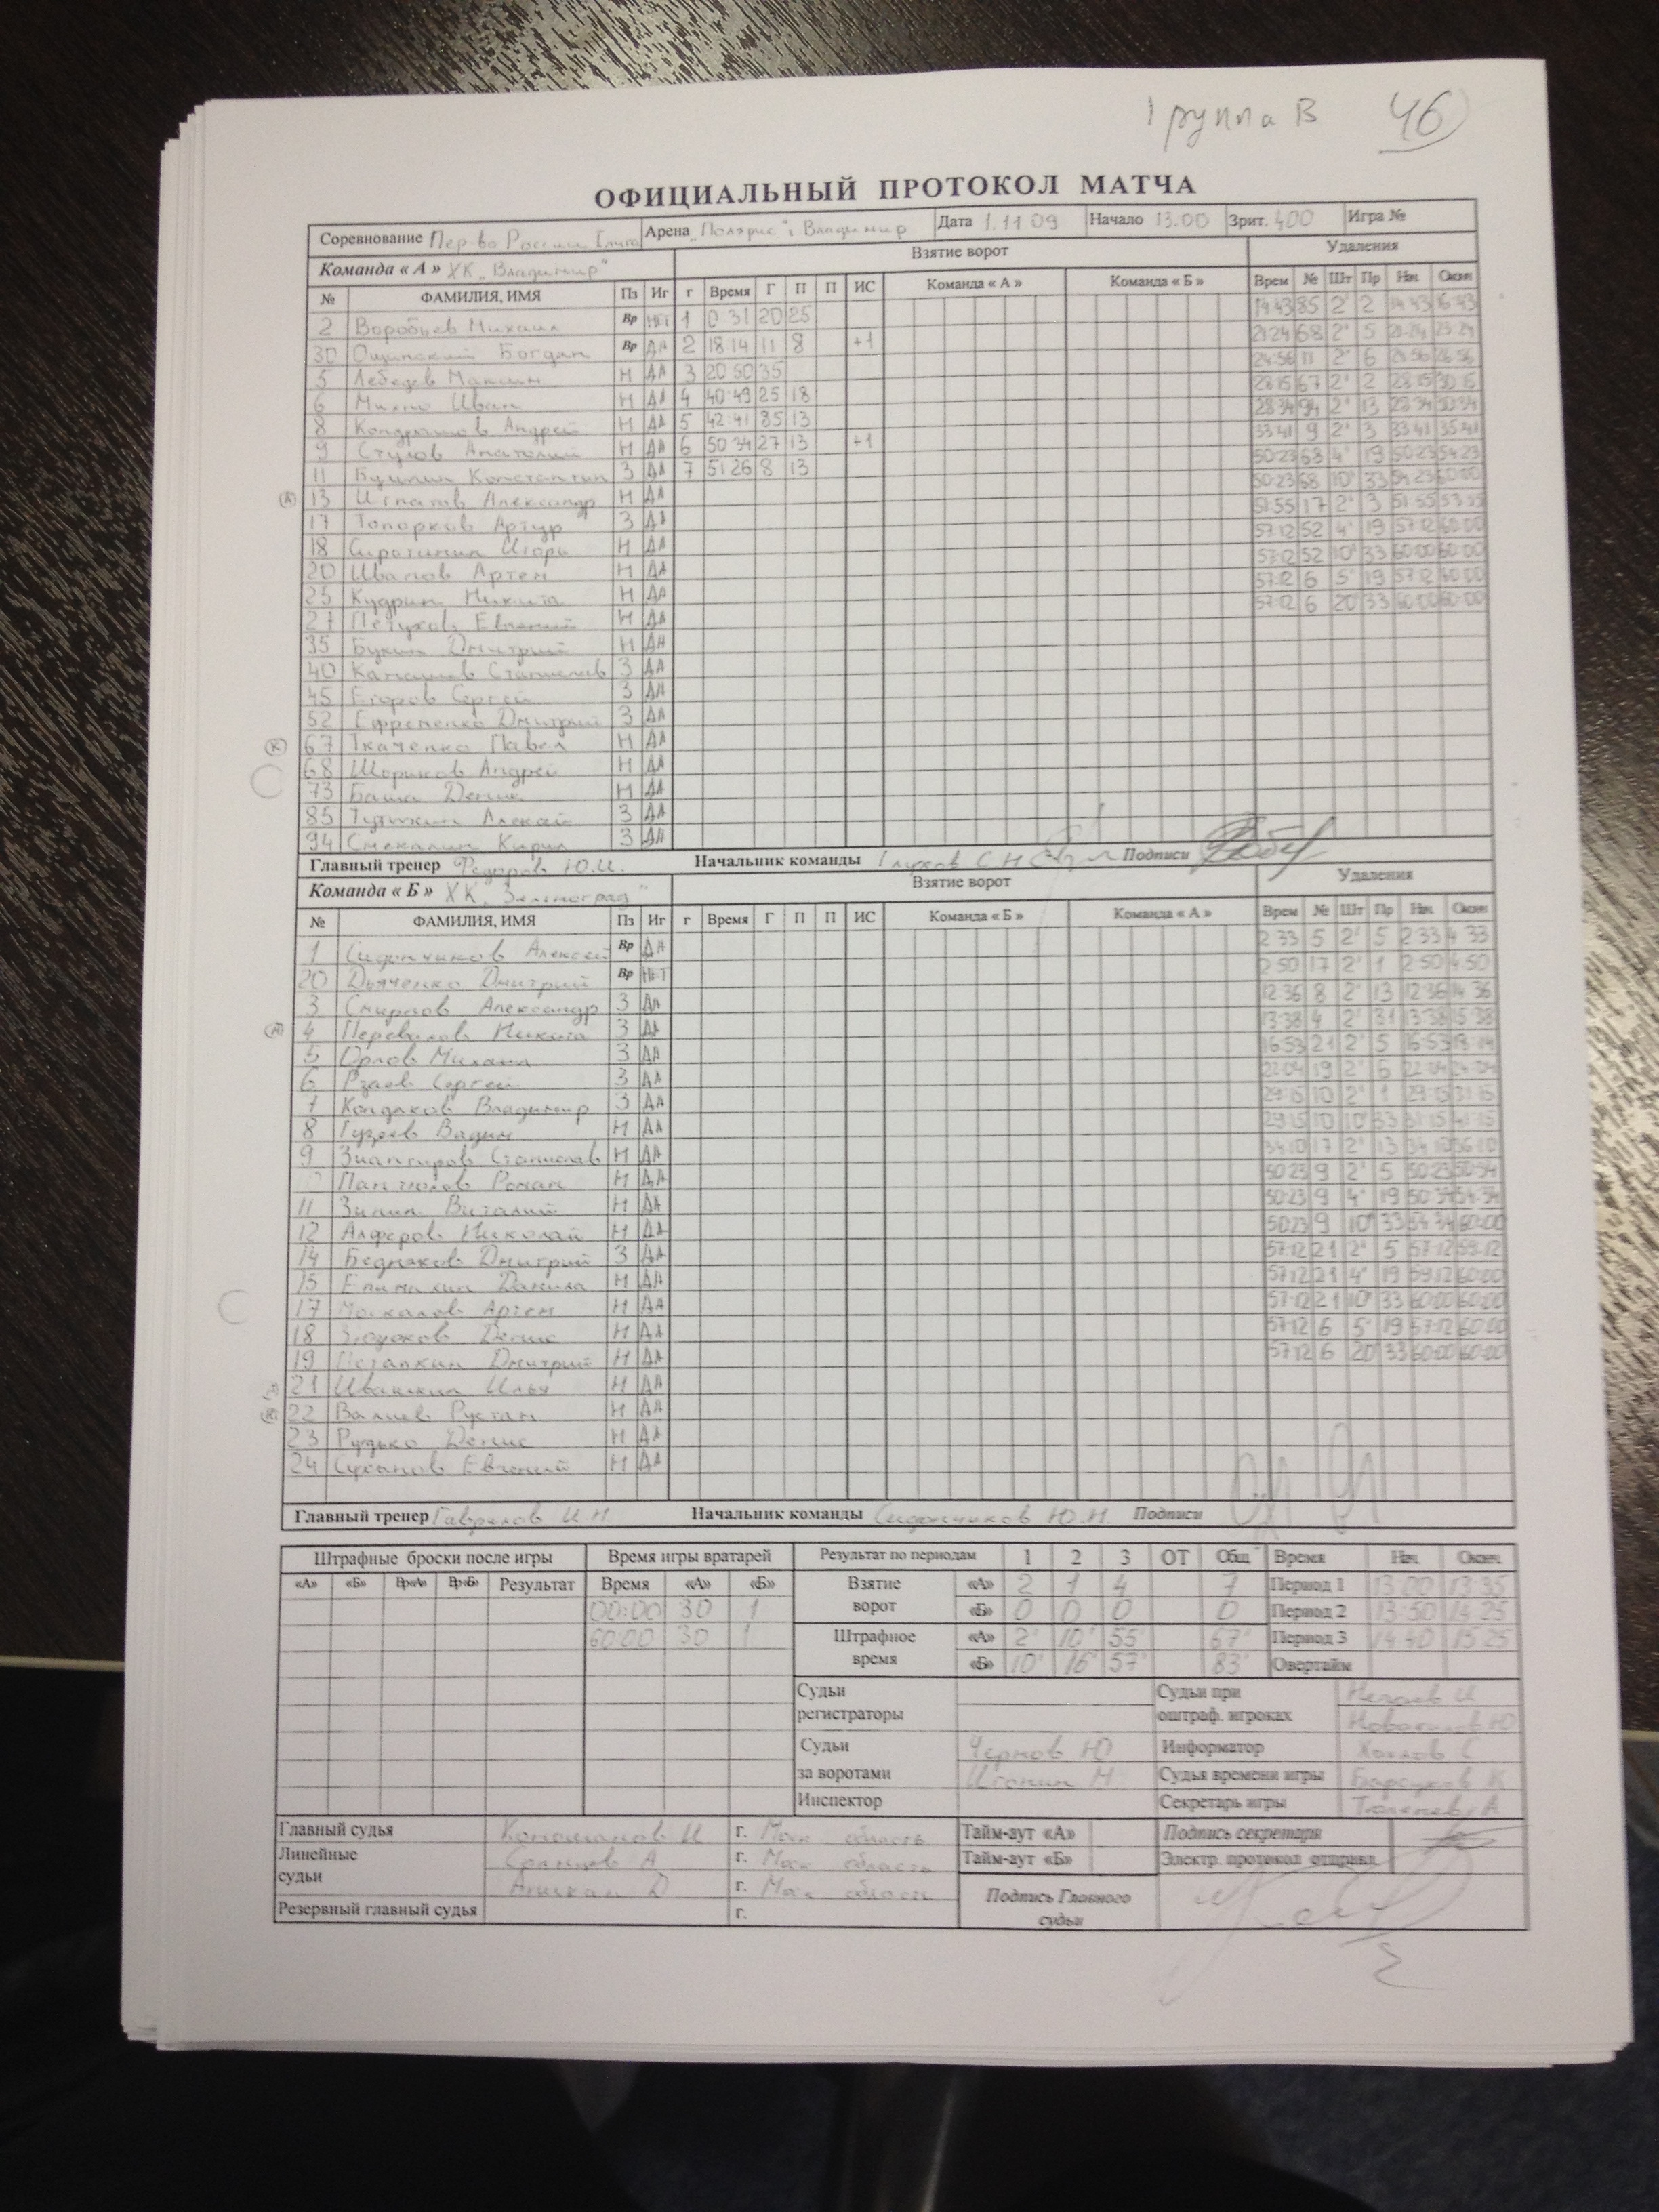 Группа В 46
ОФИЦИАЛЬНЫЙ ПРОТОКОЛ МАТЧА
Соревнование Пер-во России Арена "Полярис" г Владимир Дата 1.11 09 Начало 13.00 Зрит. 400 Игра №
Команда « А » ХК "Владимир" Взятие ворот Удаления
№ ФАМИЛИЯ, ИМЯ Пз Иг г Время Г П П ИС Команда « А » Команда « Б » Врем № Шт Пр Нач Оконч
2 Воробьев Михаил Вр НЕТ 1 0 31 20 25 14 43 85 2' 2 14 43 16 43
30 Ощипский Богдан Вр ДА 2 18 14 11 8 +1 21 24 68 2' 5 21 24 23 24
5 Лебедев Максим Н ДА 3 20 50 35 24 56 11 2' 6 24 56 26 56
6 Михно Иван Н ДА 4 40 49 25 18 28 15 67 2' 2 28 15 30 15
8 Кондрашов Андрей Н ДА 5 42 41 35 13 28 34 94 2' 13 28 34 30 34
9 Стулов Анатолий Н ДА 6 50 34 27 13 +1 33 41 9 2' 3 33 41 35 41
11 Константин З ДА 7 51 26 8 13 50 23 68 4' 19 50 23 54 23
(А) 13 Игнатов Александр Н ДА 50 23 68 10' 33 54 23 60:00
17 Топорков Артур З ДА 51 55 17 2' 3 51 55 53 55
18 Сиротинин Игорь Н ДА 57 12 52 4' 19 57 12 60:00
20 Иванов Артем Н ДА 57 12 52 10' 33 60:00 60:00
25 Кудрин Никита Н ДА 57 12 6 5' 19 57 12 60:00
27 Петухов Евгений Н ДА 57 12 6 20' 33 60:00 60:00
35 Букин Дмитрий Н ДА
40 Станислав З ДА
45 Егоров Сергей З ДА
52 Ефременко Дмитрий З ДА
(К) 67 Ткаченко Павел Н ДА
68 Шориков Андрей Н ДА
73 Баша Денис Н ДА
85 Алексей З ДА
94 Смекалин Кирил З ДА
Главный тренер Федоров Ю.И. Начальник команды Глухов С Н Подписи
Команда « Б » ХК "Зеленоград" Взятие ворот Удаления
№ ФАМИЛИЯ, ИМЯ Пз Иг г Время Г П П ИС Команда « Б » Команда « А » Врем № Шт Пр Нач Оконч
1 Сидончиков Алексей Вр ДА 2 33 5 2' 5 2 33 4 33
20 Дьяченко Дмитрий Вр НЕТ 2 50 17 2' 1 2 50 4 50
3 Смирнов Александр З ДА 12 36 8 2' 13 12 36 14 36
4 Перевалов Никита З ДА 13 38 4 2' 31 13 38 15 38
5 Орлов Михаил З ДА 16 53 21 2' 5 16 53 18 14
6 Рзаев Сергей З ДА 22 04 19 2' 6 22 04 24 04
7 Кондаков Владимир З ДА 29 15 10 2' 1 29 15 31 15
8 Гузеев Вадим Н ДА 29 15 10 10' 33 31 15 41 15
9 Зиангиров Станислав Н ДА 34 10 17 2' 13 34 10 36 10
Пантюхов Роман Н ДА 50 23 9 2' 5 50 23 50 34
11 Зинин Виталий Н ДА 50 23 9 4' 19 50 34 54 34
12 Алферов Николай Н ДА 50 23 9 10' 33 54 34 60:00
14 Бедняков Дмитрий З ДА 57 12 21 2' 5 57 12 59 12
15 Данила Н ДА 57 12 21 4' 19 59 12 60:00
17 Москалов Артем Н ДА 57 12 21 10' 33 60:00 60:00
18 Денис Н ДА 57 12 6 5' 19 57 12 60:00
19 Потапкин Дмитрий Н ДА 57 12 6 20' 33 60:00 60:00
21 Ивашкин Илья Н ДА
22 Валиев Рустам Н ДА
23 Рудько Денис Н ДА
24 Суханов Евгений Н ДА
Главный тренер Гаврилов И.Н. Начальник команды Сидончиков Ю.Н. Подписи
Штрафные броски после игры Время игры вратарей Результат по периодам 1 2 3 ОТ Общ Время Нач Оконч
«А» «Б» Вр«А» Вр«Б» Результат Время «А» «Б» Взятие ворот «А» 2 1 4 7 Период 1 13 00 13 35
00:00 30 1 «Б» 0 0 0 0 Период 2 13 50 14 25
60:00 30 1 Штрафное время «А» 2' 10' 55' 67' Период 3 14 40 15 25
«Б» 10' 16' 57' 83' Овертайм
Судьи регистраторы Судьи при оштраф. игроках
Судьи за воротами Чернов Ю Информатор
Судья времени игры Барсуков К
Инспектор Секретарь игры
Главный судья г. Моск область Тайм-аут «А» Подпись секретаря
Линейные судьи г. Моск область Тайм-аут «Б» Электр. протокол отправл.
г. Моск область Подпись Главного судьи
Резервный главный судья г.